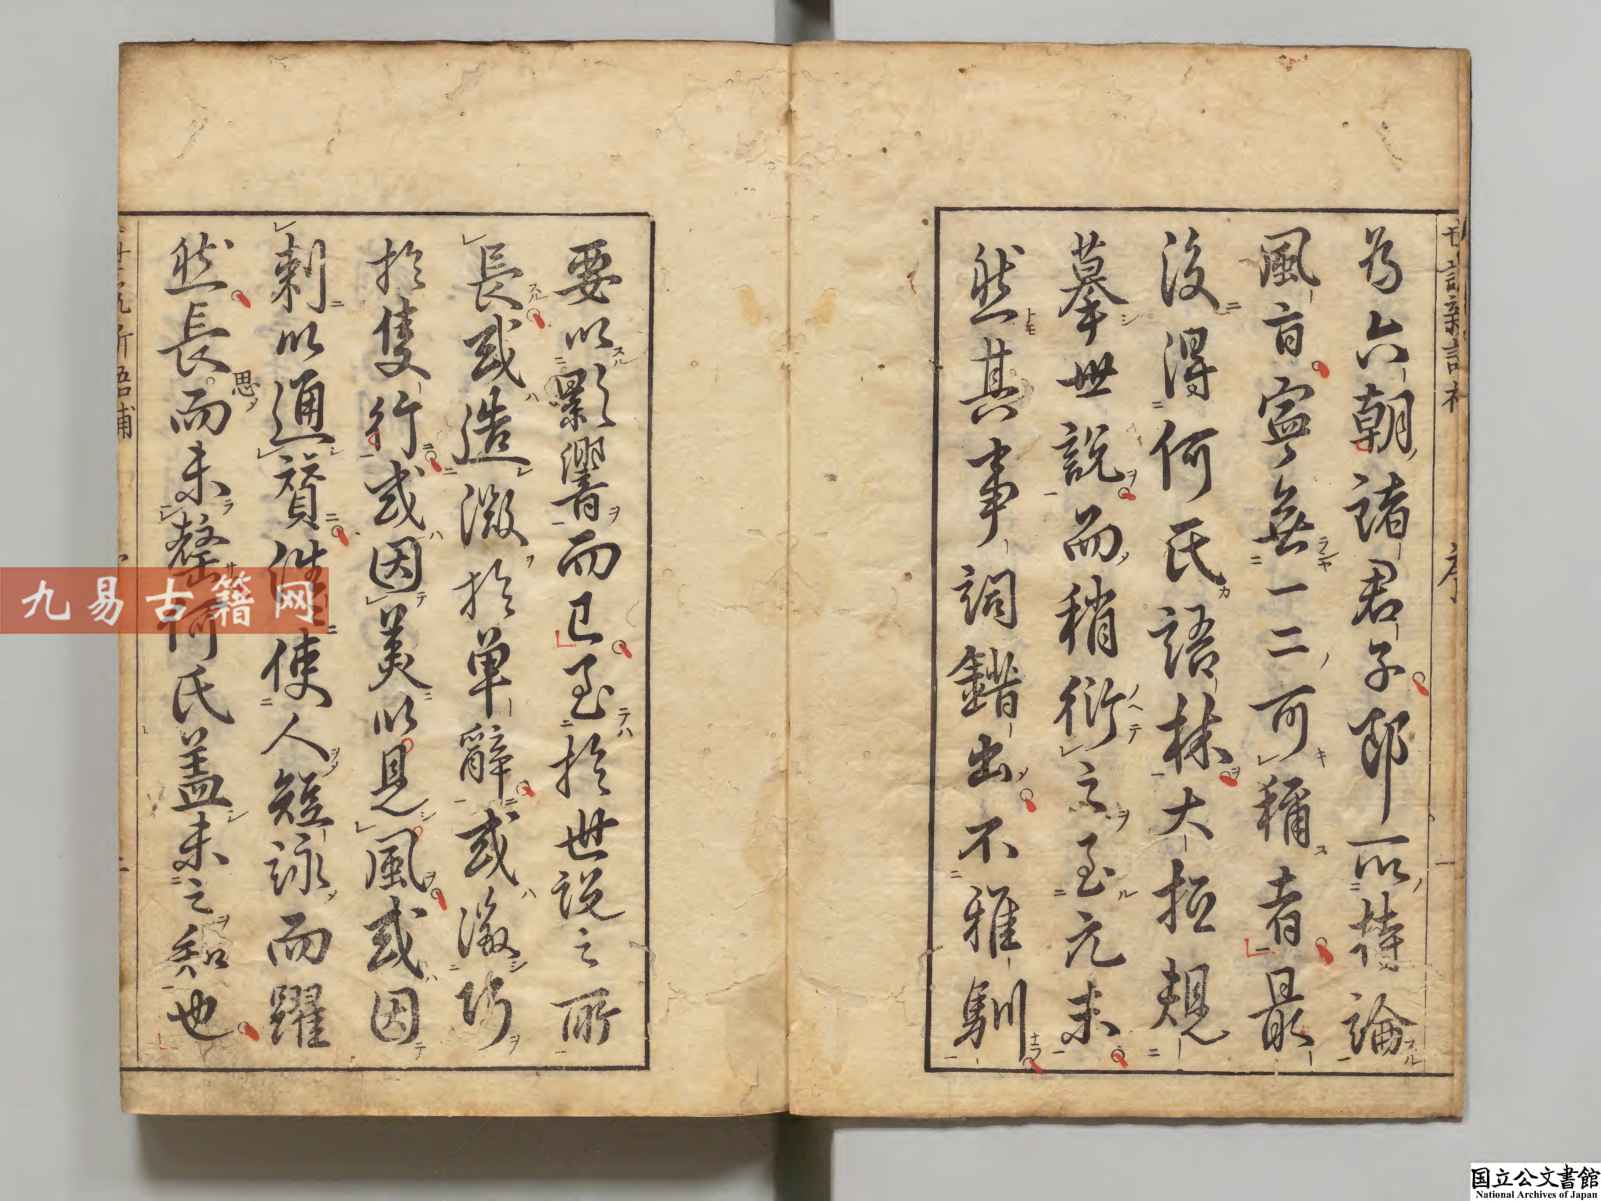 為六朝諸君子即所持論
風旨寧無一二可稱者最
後得何氏語林大抵規
摹世說而稍衍之至元末
然其事詞錯出不雅馴
要以影響而已至於世說之所
長或造微於單辭或徵巧
於隻行或因美以見風或因
刺以通贊徃徃使人短詠而躍
然長思而未罄何氏蓋未之知也
九易古籍网
国立公文書館
National Archives of Japan